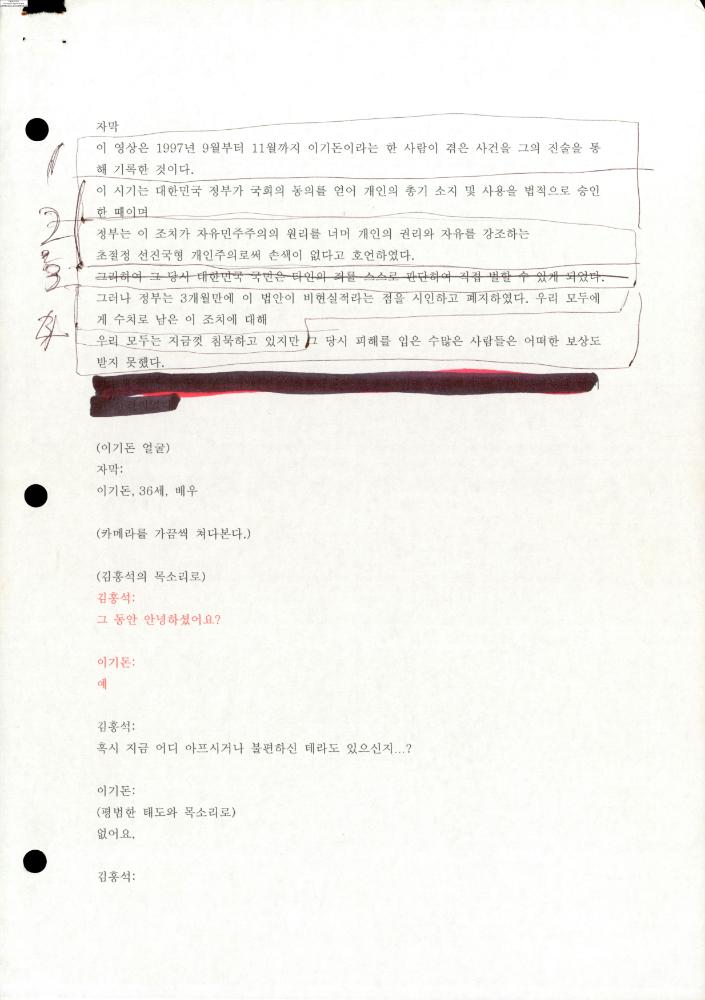 자막
이 영상은 1997년 9월부터 11월까지 이기돈이라는 한 사람이 겪은 사건을 그의 진술을 통
해 기록한 것이다.
이 시기는 대한민국 정부가 국회의 동의를 얻어 개인의 총기 소지 및 사용을 법적으로 승인
한 때이며
정부는 이 조치가 자유민주주의의 원리를 너머 개인의 권리와 자유를 강조하는
초절정 선진국형 개인주의로써 손색이 없다고 호언하였다.
그리하여 그 당시 대한민국 국민은 타인의 죄를 스스로 판단하여 직접 벌할 수 있게 되었다.
그러나 정부는 3개월만에 이 법안이 비현실적라는 점을 시인하고 폐지하였다. 우리 모두에
게 수치로 남은 이 조치에 대해
우리 모두는 지금껏 침묵하고 있지만 그 당시 피해를 입은 수많은 사람들은 어떠한 보상도
받지 못했다.
1
2
3
(이기돈 얼굴)
자막:
이기돈, 36세, 배우
(카메라를 가끔씩 쳐다본다.)
(김홍석의 목소리로)
김홍석:
그 동안 안녕하셨어요?
이기돈:
예
김홍석:
혹시 지금 어디 아프시거나 불편하신 데라도 있으신지...?
이기돈:
(평범한 태도와 목소리로)
없어요.
김홍석: